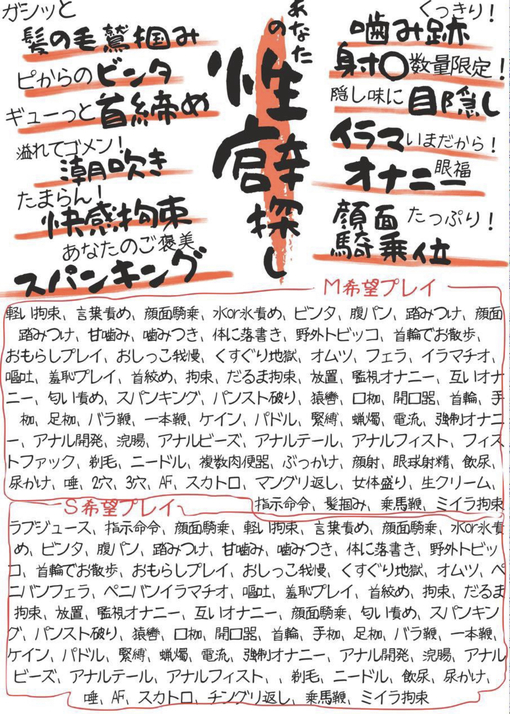 あなた
の
性癖探し
ガシッと
髪の毛鷲掴み
ピからのビンタ
ギューっと首締め
溢れてゴメン!
潮吹き
たまらん!
快感拘束
あなたのご褒美
スパンキング
くっきり!
噛み跡
射才○数量限定!
隠し味に目隠し
イラマいまだから!
オナニー眼福
顔面たっぷり!
騎乗位
M希望プレイ
軽い拘束、言葉責め、顔面騎乗、水or氷責め、ビンタ、腹パン、踏みつけ、顔面
踏みつけ、甘噛み、噛みつき、体に落書き、野外トビッコ、首輪でお散歩、
おもらしプレイ、おしっこ我慢、くすぐり地獄、オムツ、フェラ、イラマチオ、
嘔吐、羞恥プレイ、首絞め、拘束、だるま拘束、放置、監視オナニー、互いオナ
ニー、匂い責め、スパンキング、パンスト破り、猿轡、口枷、開口器、首輪、手
枷、足枷、バラ鞭、一本鞭、ケイン、パドル、緊縛、蝋燭、電流、強制オナニ
ー、アナル開発、浣腸、アナルビーズ、アナルテール、アナルフィスト、フィス
トファック、剃毛、ニードル、複数肉便器、ぶっかけ、顔射、眼球射精、飲尿、
尿かけ、唾、2穴、3穴、AF、スカトロ、マングリ返し、女体盛り、生クリーム、
指示命令、髪掴み、乗馬鞭、ミイラ拘束
S希望プレイ
ラブジュース、指示命令、顔面騎乗、軽い拘束、言葉責め、顔面騎乗、水or氷責
め、ビンタ、腹パン、踏みつけ、甘噛み、噛みつき、体に落書き、野外トビッ
コ、首輪でお散歩、おもらしプレイ、おしっこ我慢、くすぐり地獄、オムツ、ペ
ニバンフェラ、ペニバンイラマチオ、嘔吐、羞恥プレイ、首絞め、拘束、だるま
拘束、放置、監視オナニー、互いオナニー、顔面騎乗、匂い責め、スパンキン
グ、パンスト破り、猿轡、口枷、開口器、首輪、手枷、足枷、バラ鞭、一本鞭、
ケイン、パドル、緊縛、蝋燭、電流、強制オナニー、アナル開発、浣腸、アナル
ビーズ、アナルテール、アナルフィスト、、剃毛、ニードル、飲尿、尿かけ、
唾、AF、スカトロ、チングリ返し、乗馬鞭、ミイラ拘束